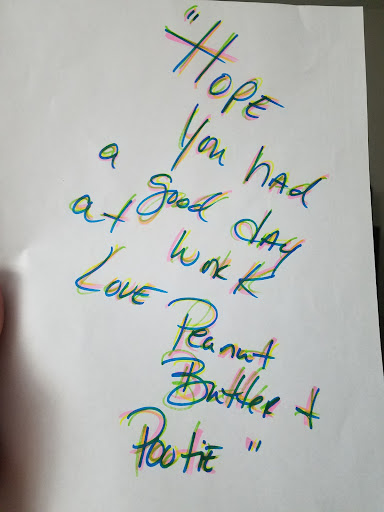 "HOPE
You had
a good day
at work
Love Peanut
Butter +
Pootie"